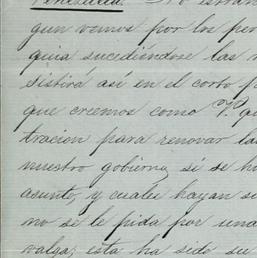 Venezuela. No
gun vemos por los per
quia sucediéndose las
sistirá así en el corto p
que creemos como V. qu
tracion para renovar la
nuestro gobierno, si se h
asunto, y cuales hayan s
no se le pida por una
valga; esta ha sido su